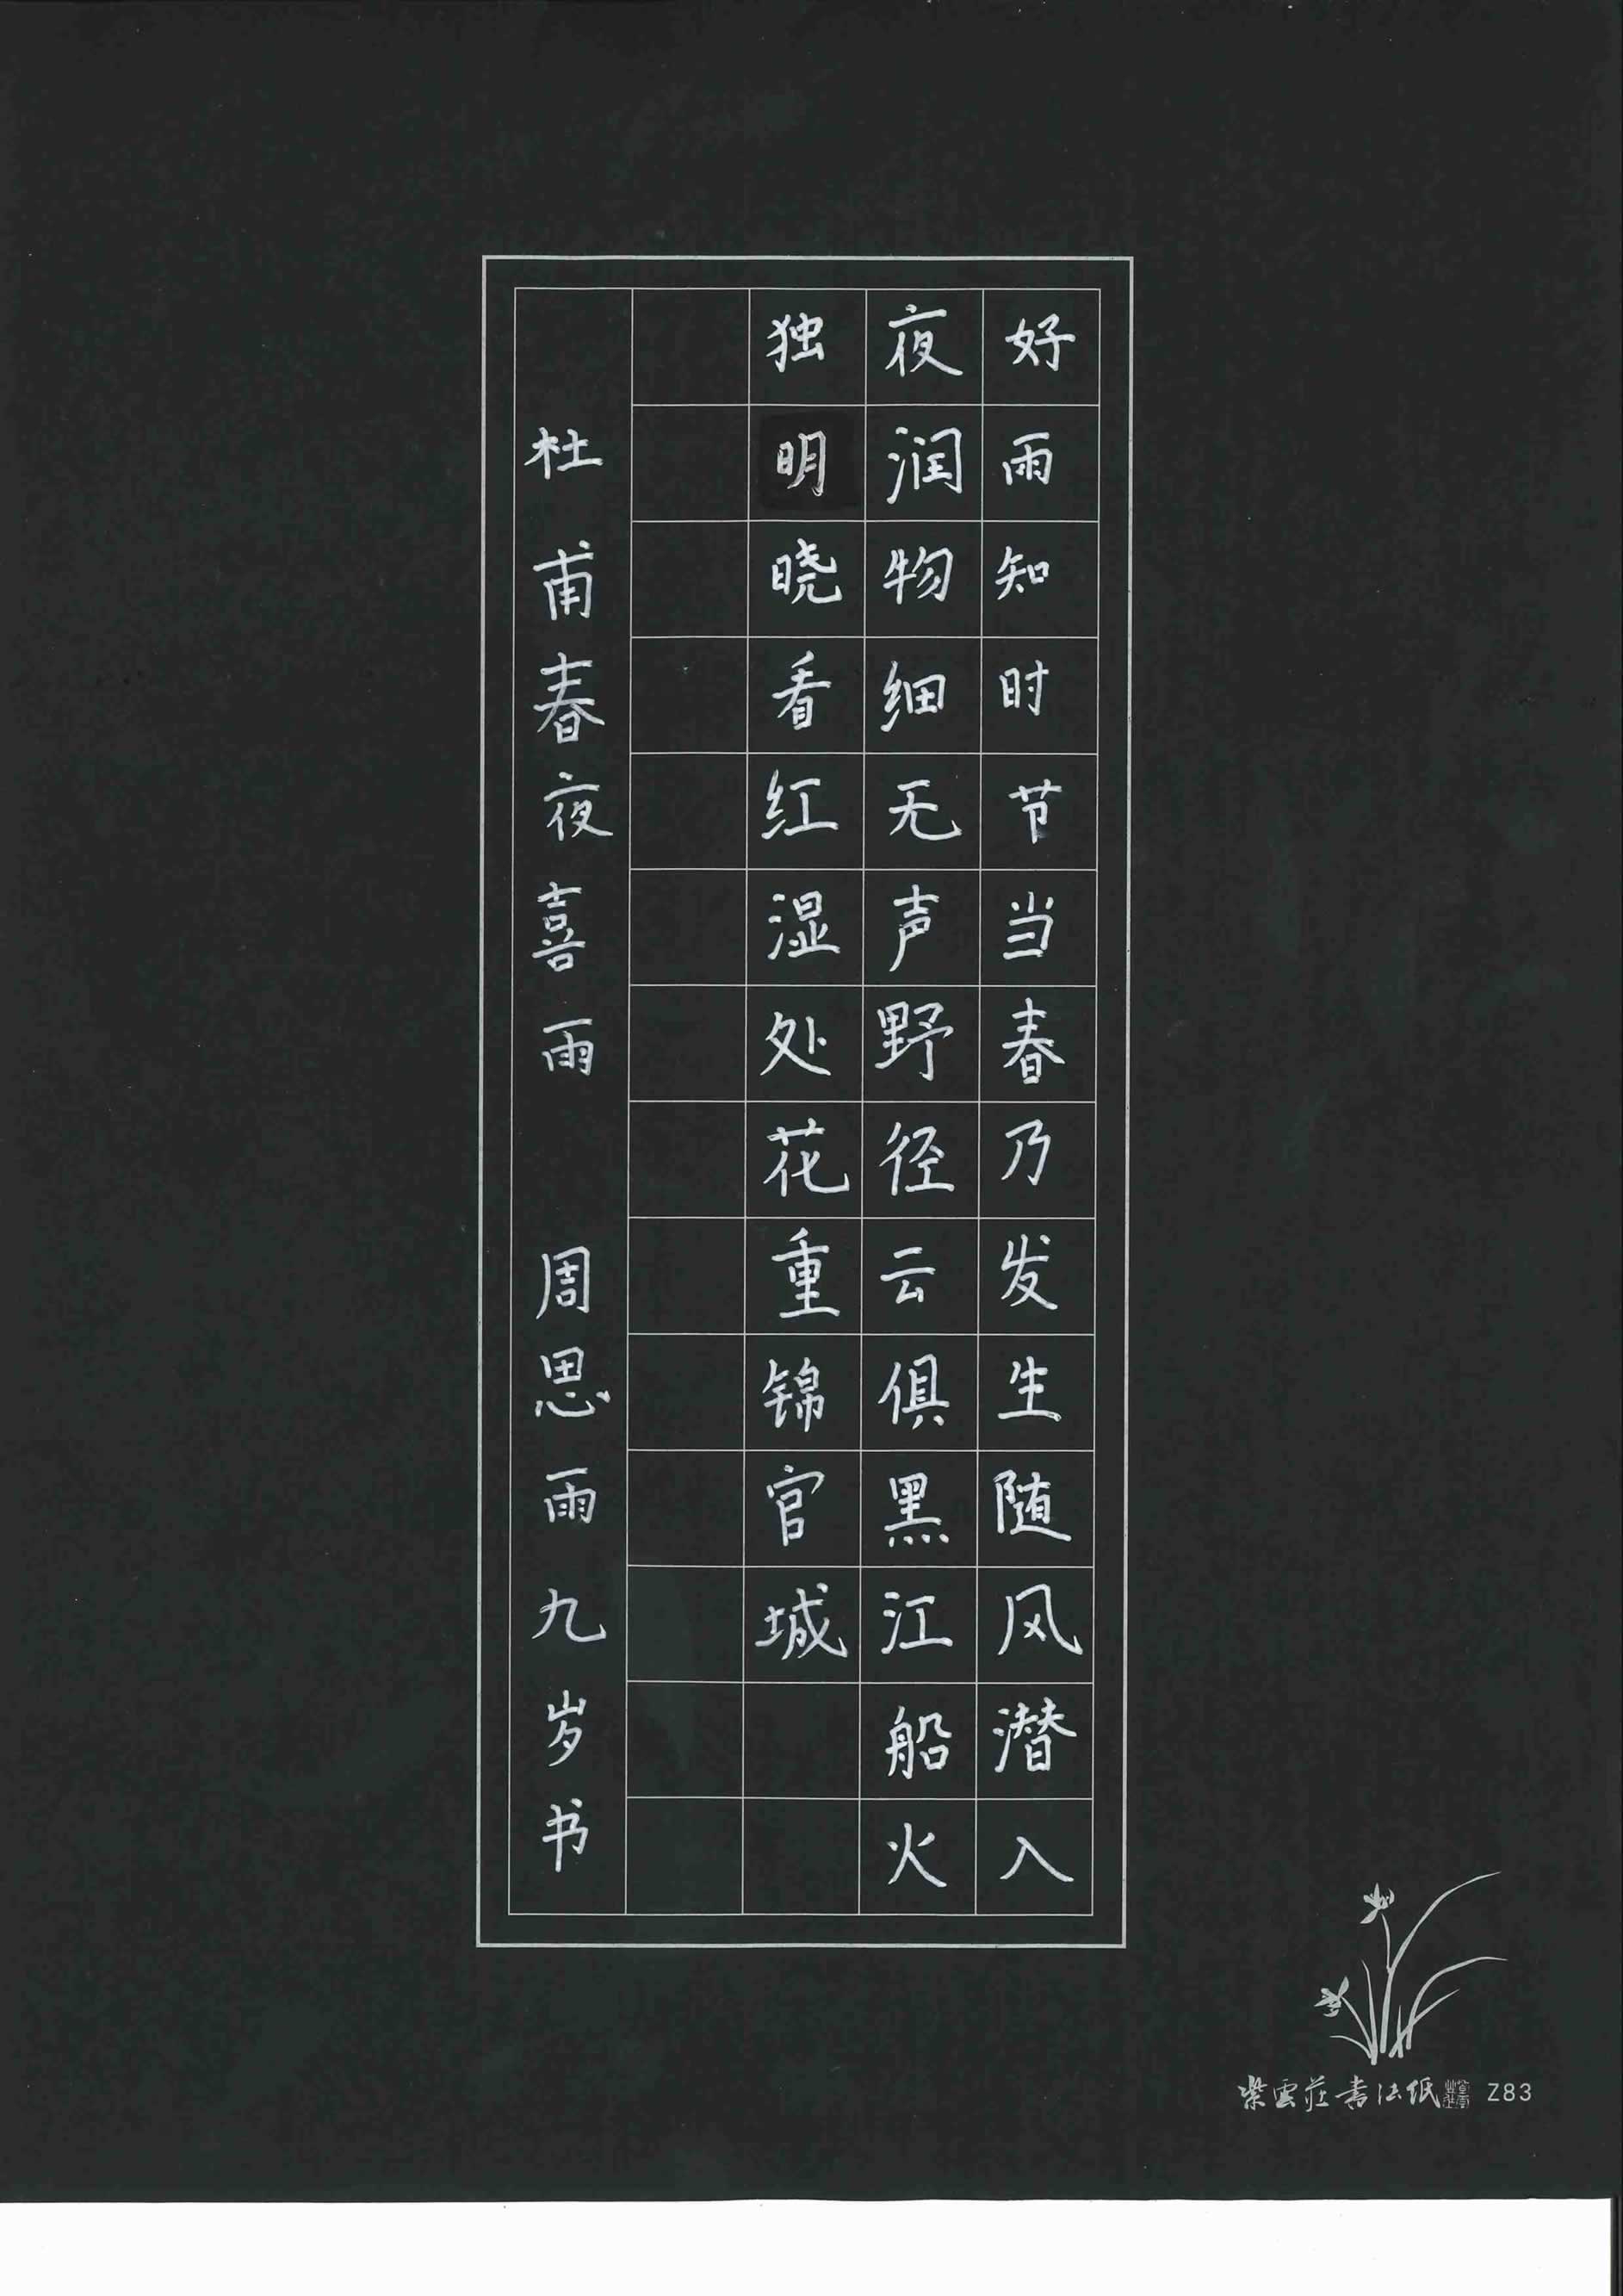 好雨知时节当春乃发生随风潜入
夜润物细无声野径云俱黑江船火
独明晓看红湿处花重锦官城
杜甫春夜喜雨 周思雨九岁书
紫雲莊書法紙 Z83